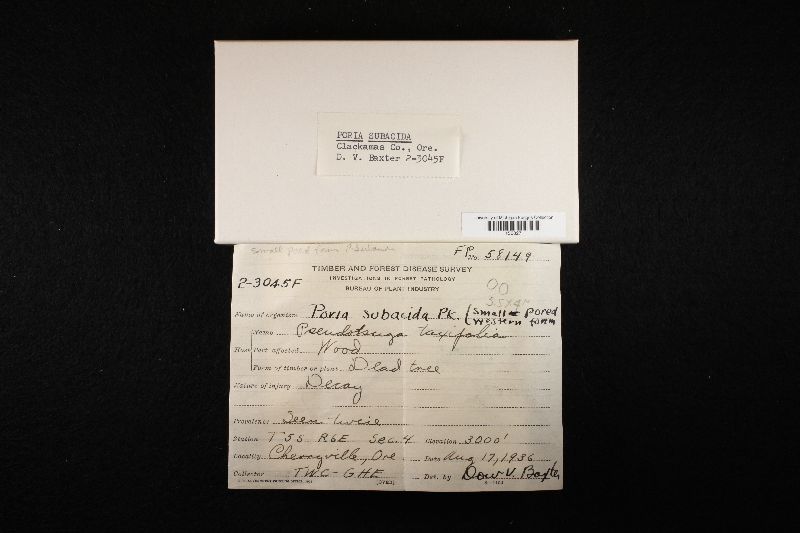 PORIA SUBACIDA
Clackamas Co., Ore.
D. V. Baxter 2-3045F
University of Michigan Fungus Collection
small pored form
F P No. 58149
TIMBER AND FOREST DISEASE SURVEY
INVESTIGATIONS IN FOREST PATHOLOGY
BUREAU OF PLANT INDUSTRY
2-3045F
Name of organism Poria subacida Pk. (Small pored
Western form
Name Pseudotsuga taxifolia
Host Part affected Wood
Form of timber or plant Dead tree
Nature of injury Decay
Prevalence Seen twice
Station T 5S R6E Sec. 4 Elevation 3000'
Locality Cherryville, Ore Date Aug 17, 1936
Collector TWC-GHE Det. by Dow V. Baxter